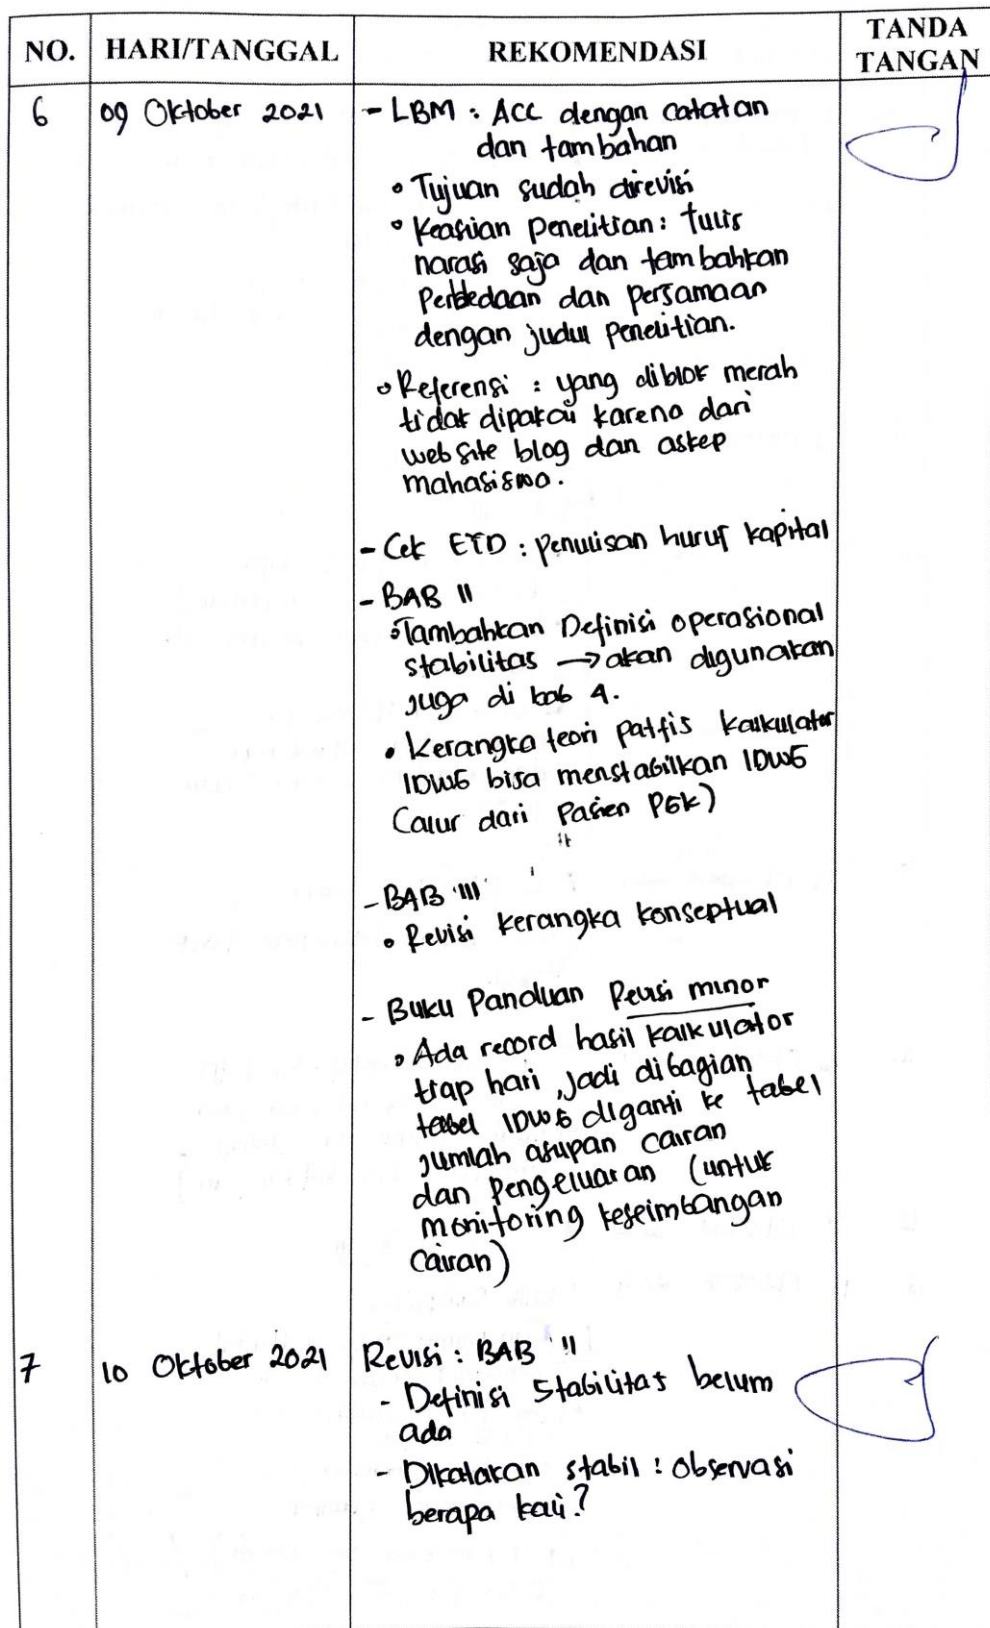 NO. HARI/TANGGAL REKOMENDASI TANDA TANGAN
6 09 Oktober 2021 - LBM : ACC dengan catatan
dan tambahan
• Tujuan sudah direvisi
• Keaslian Penelitian : tulis
narasi saja dan tambahkan
Perbedaan dan persamaan
dengan judul penelitian.
• Referensi : yang diblok merah
tidak dipakai karena dari
web site blog dan askep
mahasiswa.
- Cek EYD : penulisan huruf kapital
- BAB II
• Tambahkan Definisi operasional
stabilitas → akan digunakan
juga di bab 4.
• Kerangka teori patfis kalkulator
IDWG bisa menstabilkan IDWG
(alur dari Pasien PGK)
- BAB III
• Revisi kerangka konseptual
- Buku Panduan Revisi minor
• Ada record hasil kalkulator
tiap hari, jadi dibagian
tabel IDWG diganti ke tabel
jumlah asupan cairan
dan Pengeluaran (untuk
monitoring keseimbangan
Cairan)
7 10 Oktober 2021 Revisi : BAB II
- Definisi Stabilitas belum
ada
- Dikatakan stabil : Observasi
berapa kali?